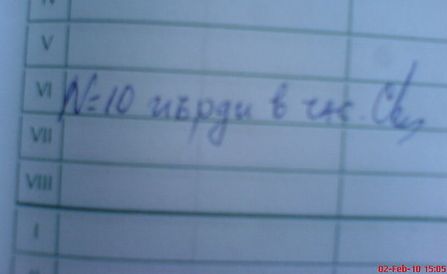 V
VI N=10 мърди в час.
VII
VIII
I
02-Feb-10 15:05